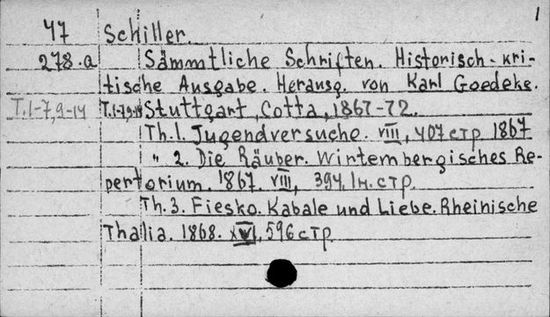 1
47 Schiller.
278.a Sämmtliche Schriften. Historisch-kri-
tische Ausgabe. Herausg. von Karl Goedeke.
T.1-7,9-14 T.1-7,9-14 Stuttgart, Cotta, 1867-72.
Th.1. Jugendversuche. VIII, 407 стр 1867
" 2. Die Räuber. Wirtembergisches Re-
pertorium. 1867. VIII, 394, 1н. стр.
Th.3. Fiesko. Kabale und Liebe. Rheinische
Thalia. 1868. 596 стр.